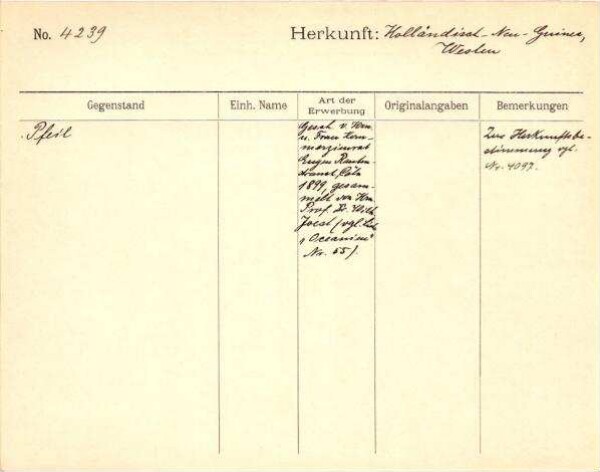 No. 4239
Herkunft: Holländisch-Neu-Guinea,
Westen
Gegenstand
Einh. Name
Art der
Erwerbung
Originalangaben
Bemerkungen
Pfeil
Gesch. v. Herrn
u. Frau Kom-
merzienrat
Eugen Rauten-
strauch, Cöln
1899, gesam-
melt von Hrn.
Prof. Dr. Wilh.
Joest (vgl. Liste
"Oceanien"
Nr. 55).
Zur Herkunftsbe-
stimmung vgl.
Nr. 4097.